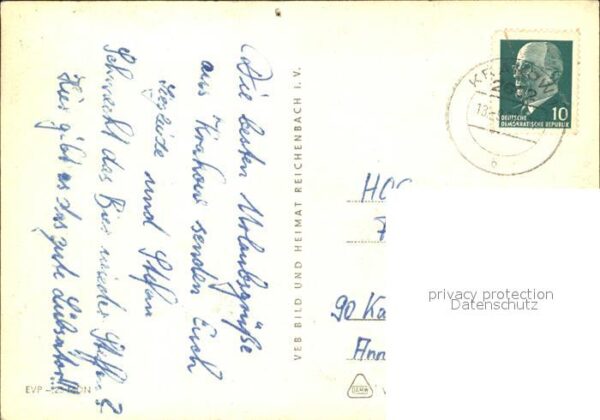 Die besten Urlaubsgrüße
aus Krakow senden Euch
Sieglinde und Stefan
Schmeckt das Bier wieder Steffen?
Hier gibt es das gute Lübzator!!!
VEB BILD UND HEIMAT REICHENBACH I. V.
EVP
KRAKOW
10
DEUTSCHE
DEMOKRATISCHE REPUBLIK
HO
90 Ka
Ann
privacy protection
Datenschutz